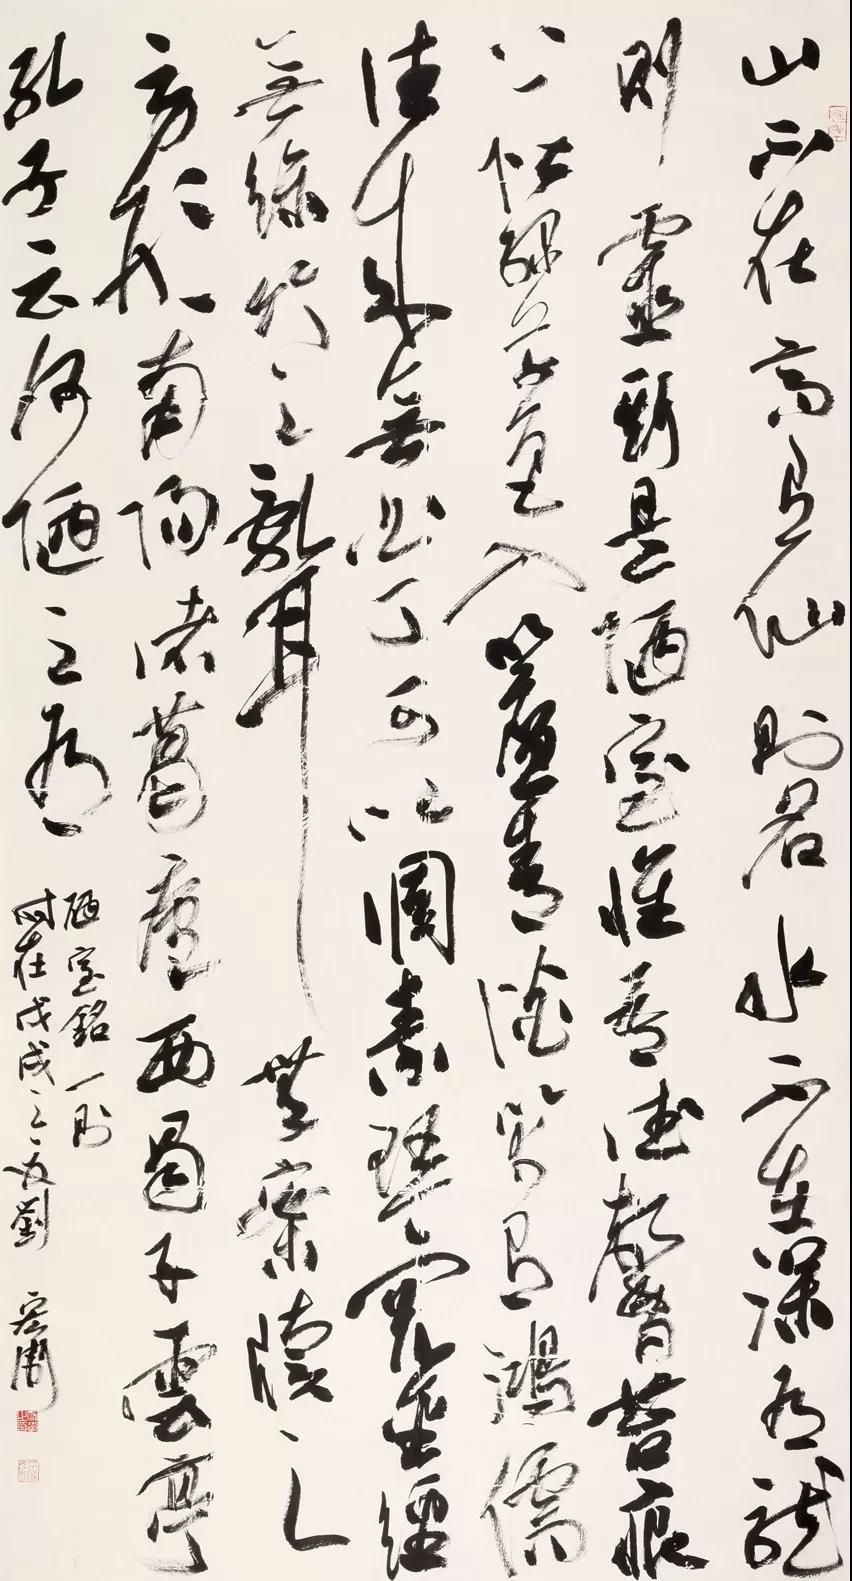 山不在高有仙則名水不在深有龍
則靈斯是陋室惟吾德馨苔痕
上階綠草色入簾青談笑有鴻儒
往來無白丁可以調素琴閱金經
無絲竹之亂耳無案牘之
勞形南陽諸葛廬西蜀子雲亭
孔子云何陋之有
陋室銘一則
時在戊戌之劉